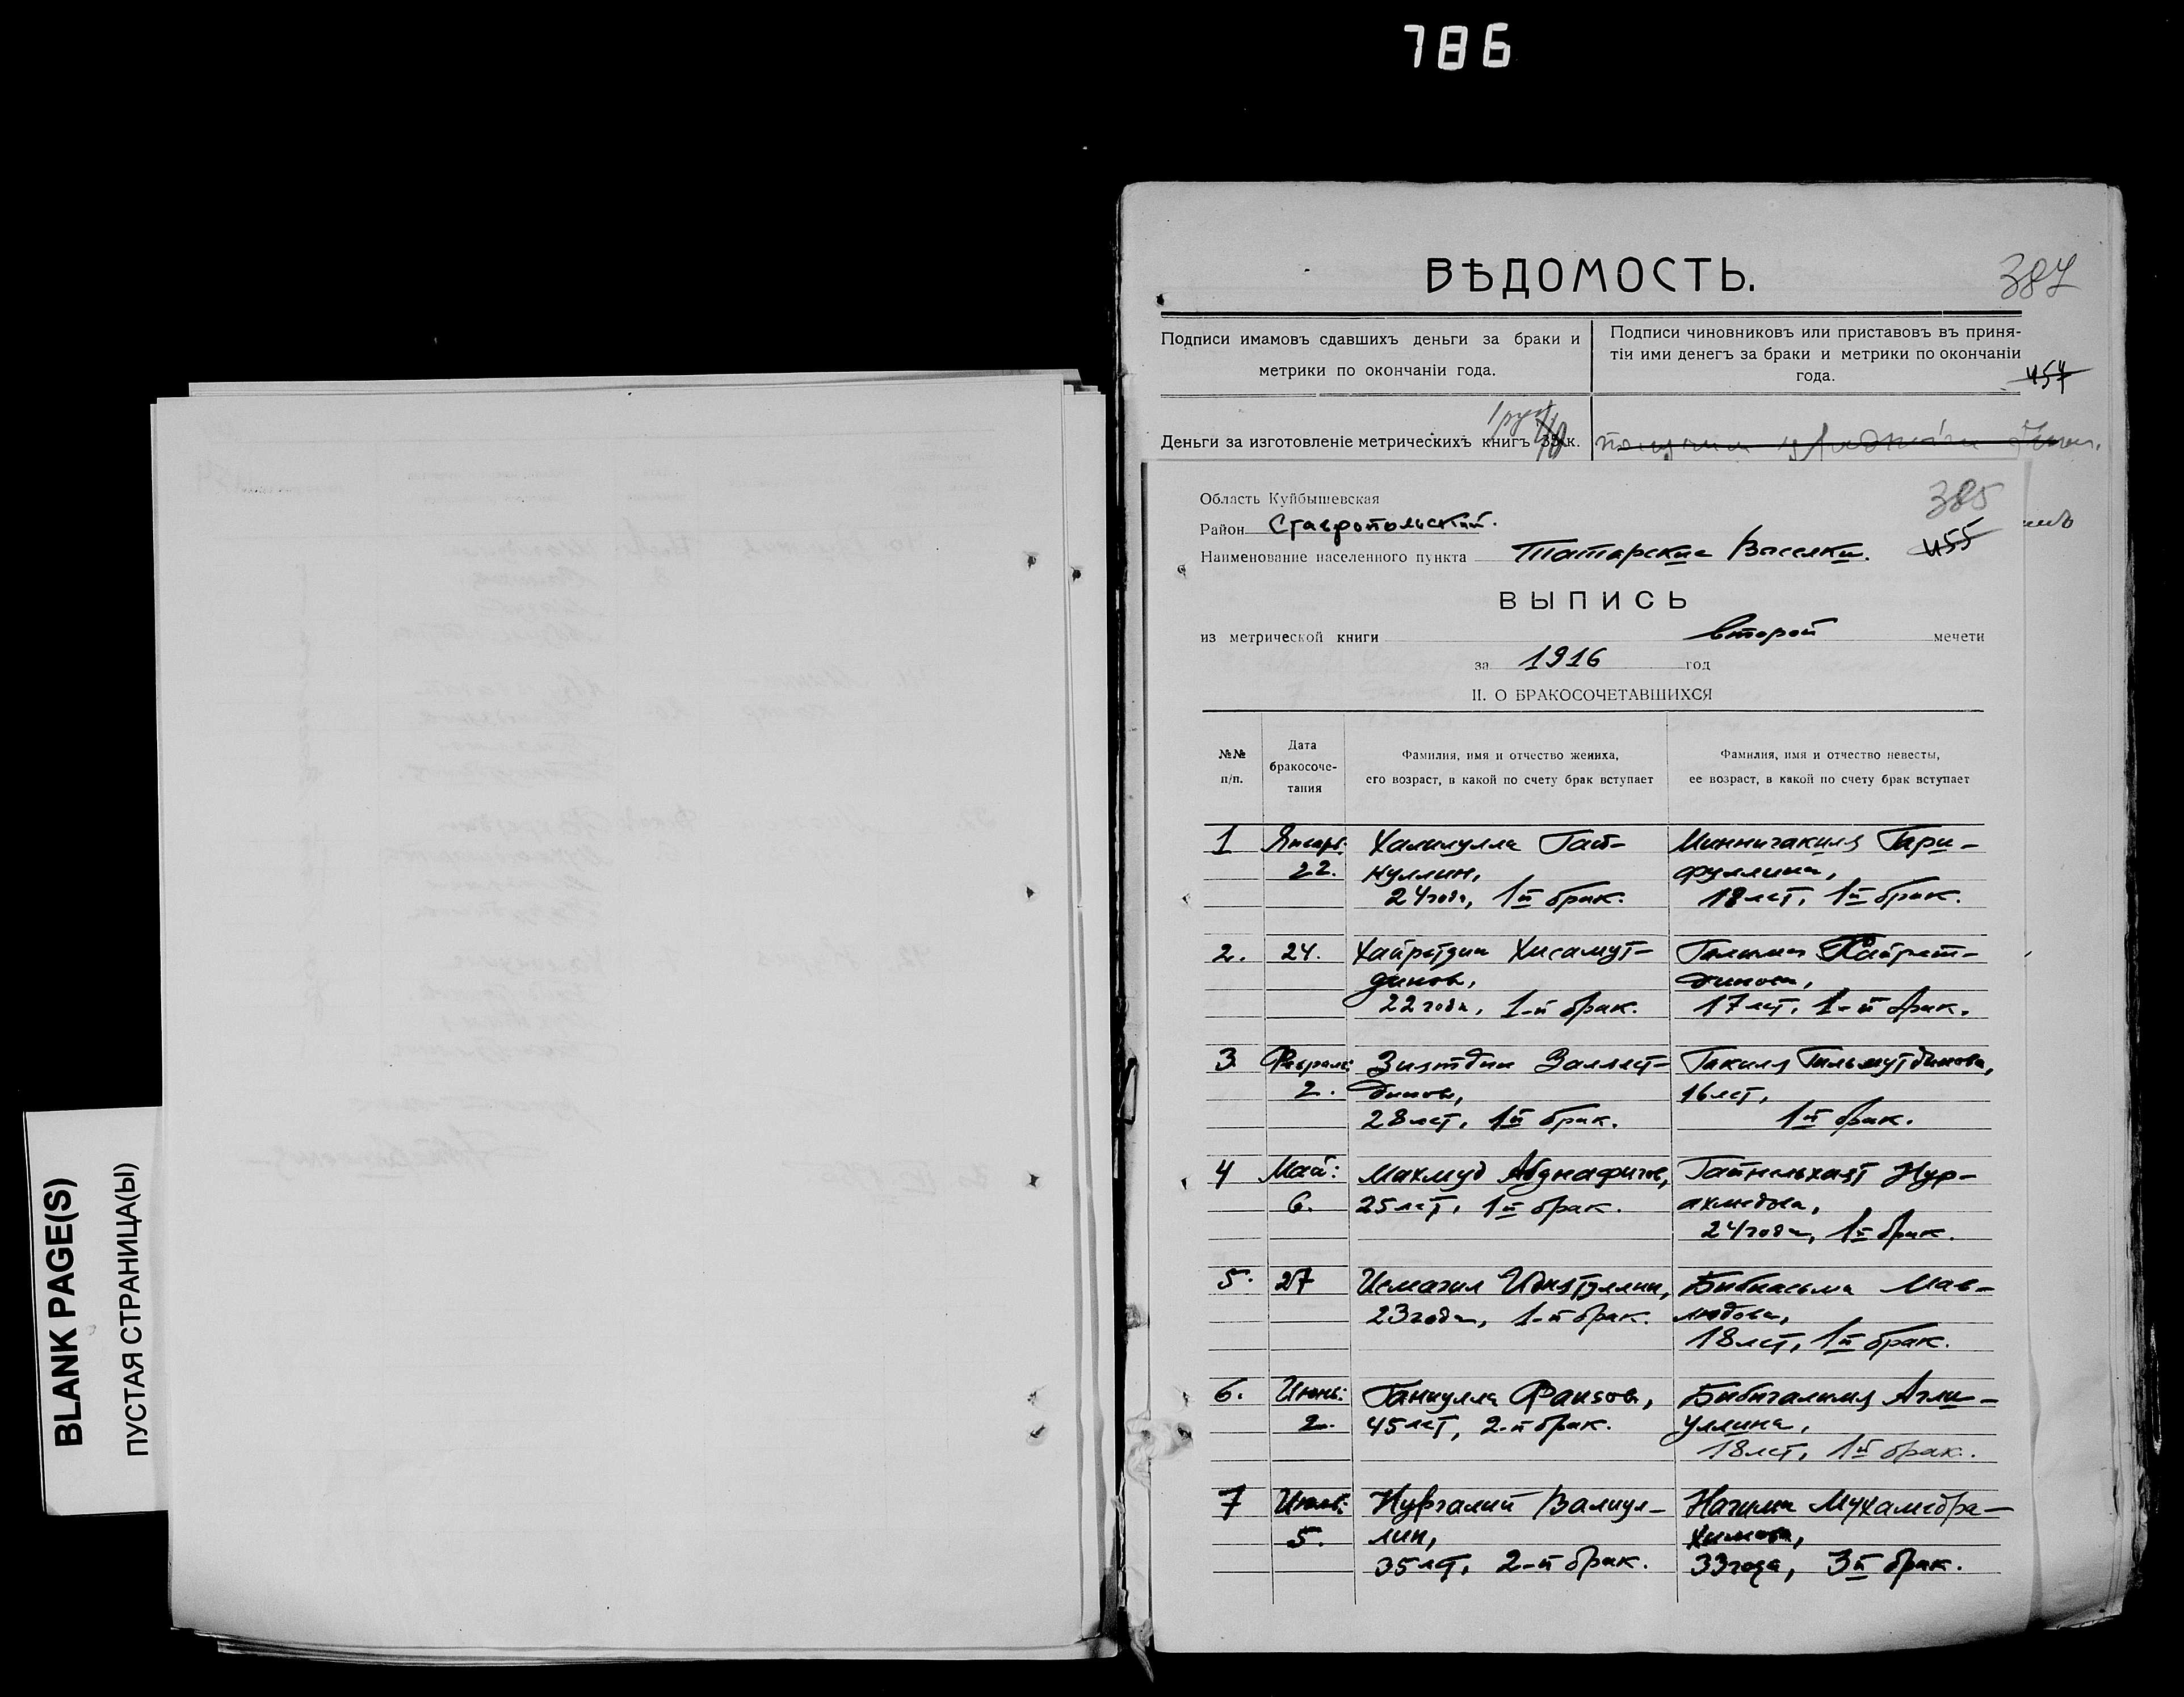 786
BLANK PAGE(S)
ПУСТАЯ СТРАНИЦА(Ы)
ВѢДОМОСТЬ.
387
Подписи имамовъ сдавшихъ деньги за браки и
метрики по окончаніи года.
Подписи чиновниковъ или приставовъ въ приня-
тіи ими денегъ за браки и метрики по окончаніи
года.
457
Деньги за изготовленіе метрическихъ книгъ 35 к.
Область Куйбышевская
385
Район Ставропольский.
Наименование населенного пункта Татарские Выселки.
455
ВЫПИСЬ
из метрической книги второй мечети
за 1916 год
II. О БРАКОСОЧЕТАВШИХСЯ
№№
п/п.
Дата
бракосоче-
тания
Фамилия, имя и отчество жениха,
его возраст, в какой по счету брак вступает
Фамилия, имя и отчество невесты,
ее возраст, в какой по счету брак вступает
1 Январь: Халилулла Гай- Миннигакиля Гари-
22. нуллин, фуллина,
24 года, 1й брак. 18 лет, 1й брак.
2. 24. Хайретдин Хисамут- Галима Хайрет-
динов, динова,
22 года, 1-й брак. 17 лет, 1-й брак.
3 Февраль: Зиятдин Залялет- Гакиля Гильмутдинова,
2. динов, 16 лет,
28 лет, 1й брак. 1й брак.
4 Май: Махмуд Абднафигов, Гайнельхаят Нур-
6. 25 лет, 1й брак. ахмедова,
24 года, 1й брак.
5. 27 Исмагил Идиятуллин, Бибиасьма Мав-
23 года, 1-й брак. людова,
18 лет, 1й брак.
6. Июнь: Ганиулла Фаизов, Бибигалима Агли-
2. 45 лет, 2-й брак. уллина,
18 лет, 1й брак.
7 Июль: Нургалий Валиул- Нагима Мухамедра-
5. лин, химова,
35 лет, 2-й брак. 33 года, 3й брак.